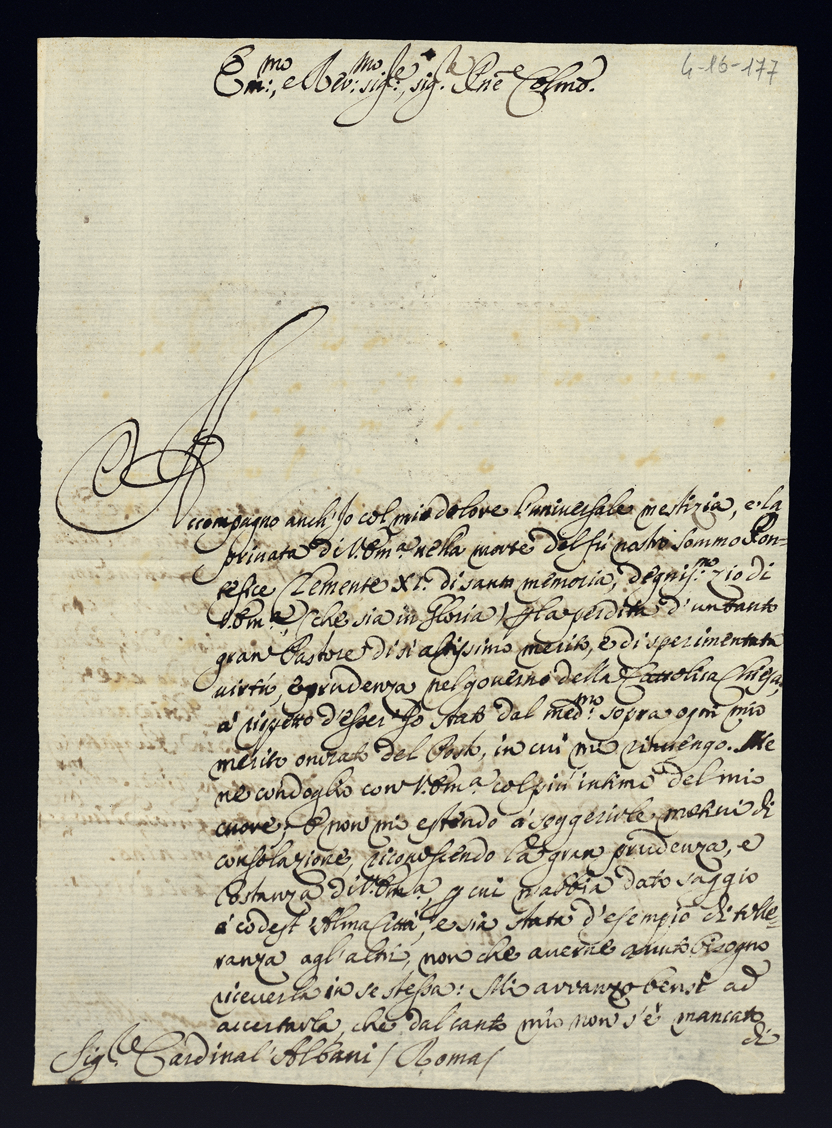 4-16-177
Em:mo, e Rev:mo Sig:re, Sig:r Pne Colmo.
Accompagno anch'Jo col mio dolore l'universale mestizia, e la
privata di V. Em:a nella morte del fù nostro Sommo Pon=
tefice Clemente XI. di santa memoria, degniss:mo zio di
V. Em:a, (che sia in Gloria) p la perdita d'un tanto
gran Pastore di sì altissimo merito, e di sperimentata
virtù, e prudenza nel governo della Cattolica Chiesa,
à rispetto d'esser Jo stato dal med:mo sopra ogni mio
merito onorato del Posto, in cui mi rinvengo. Me
ne condoglio con V. Em:a col più intimo del mio
cuore, e non mi estendo à soggerirle motivi di
consolazione, riconoscendo la gran prudenza, e
Costanza di V. Em:a, p cui n'abbia dato saggio
à codest'Alma Città, e sia stata d'esempio di tolle=
ranza agl'altri, non che averne avuto bisogno
riceverla in se stessa: Mi avvanzo bensì ad
accertarla, che dal canto mio non s'è mancato
di
Sig:re Cardinal'Albani / Roma /